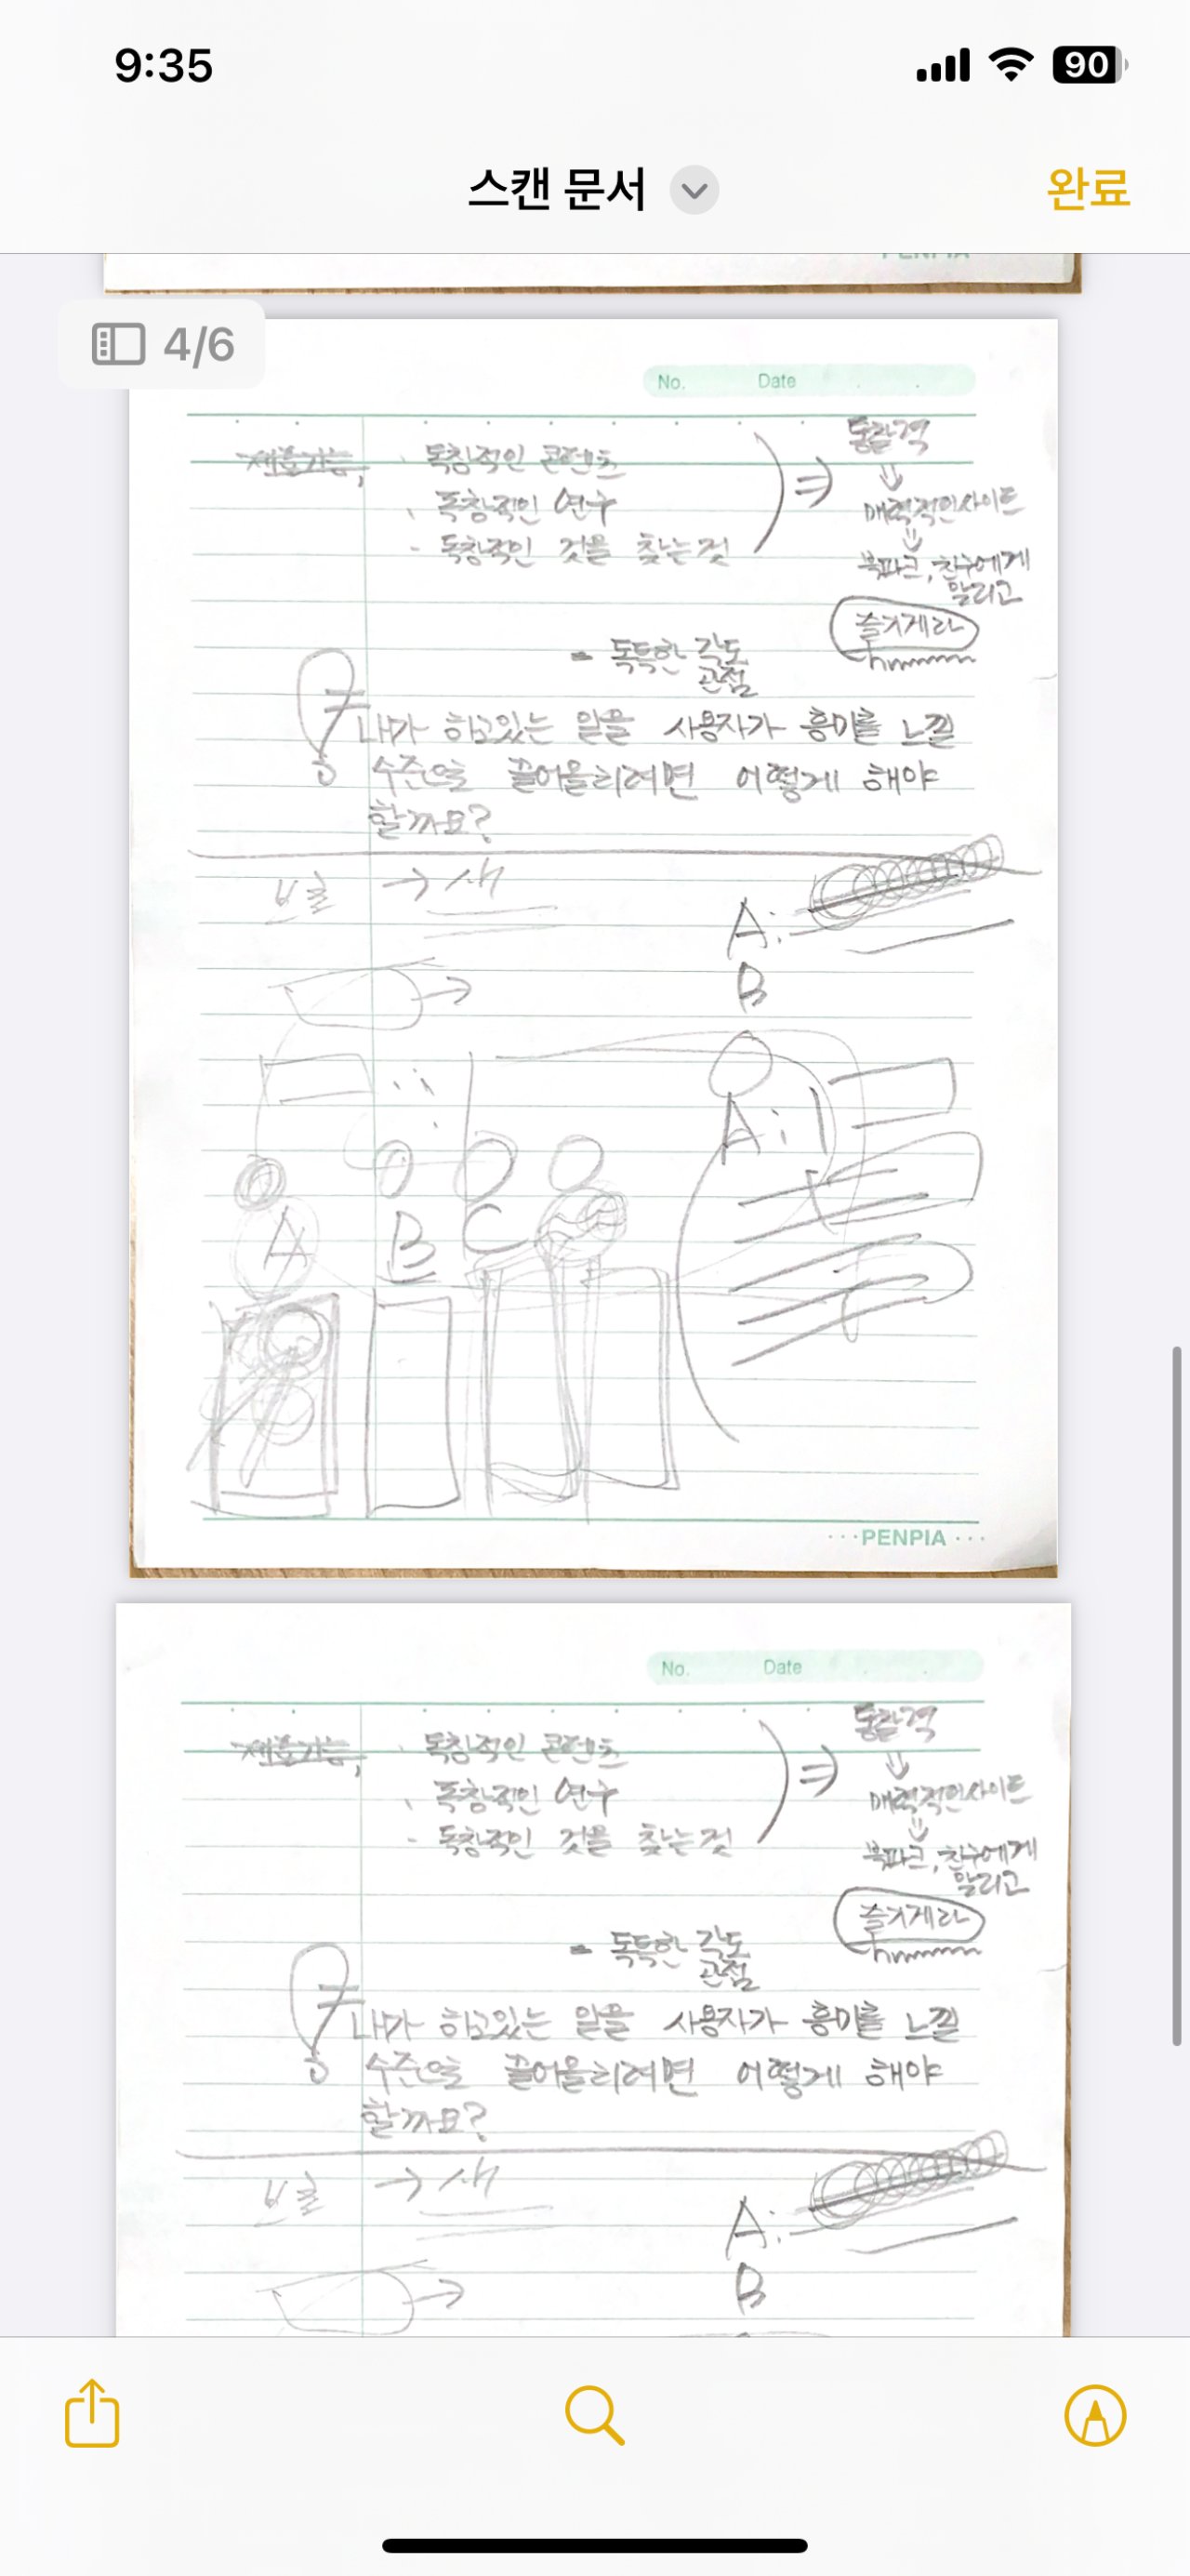 9:35
90
스캔 문서
완료
4/6
No. Date
독창적인 콘텐츠
독창적인 연구
- 독창적인 것을 찾는것
⇒
통찰력
⇓
매력적인사이트
⇓
북마크, 친구에게
알리고
즐기게라
- 독특한 각도
관점
내가 하고있는 일을 사용자가 흥미를 느낄
수준으로 끌어올리려면 어떻게 해야
할까요?
→ 새
A:
B
A:
A B C
PENPIA
No. Date
독창적인 콘텐츠
독창적인 연구
- 독창적인 것을 찾는것
⇒
통찰력
⇓
매력적인사이트
⇓
북마크, 친구에게
알리고
즐기게라
- 독특한 각도
관점
내가 하고있는 일을 사용자가 흥미를 느낄
수준으로 끌어올리려면 어떻게 해야
할까요?
→ 새
A:
B